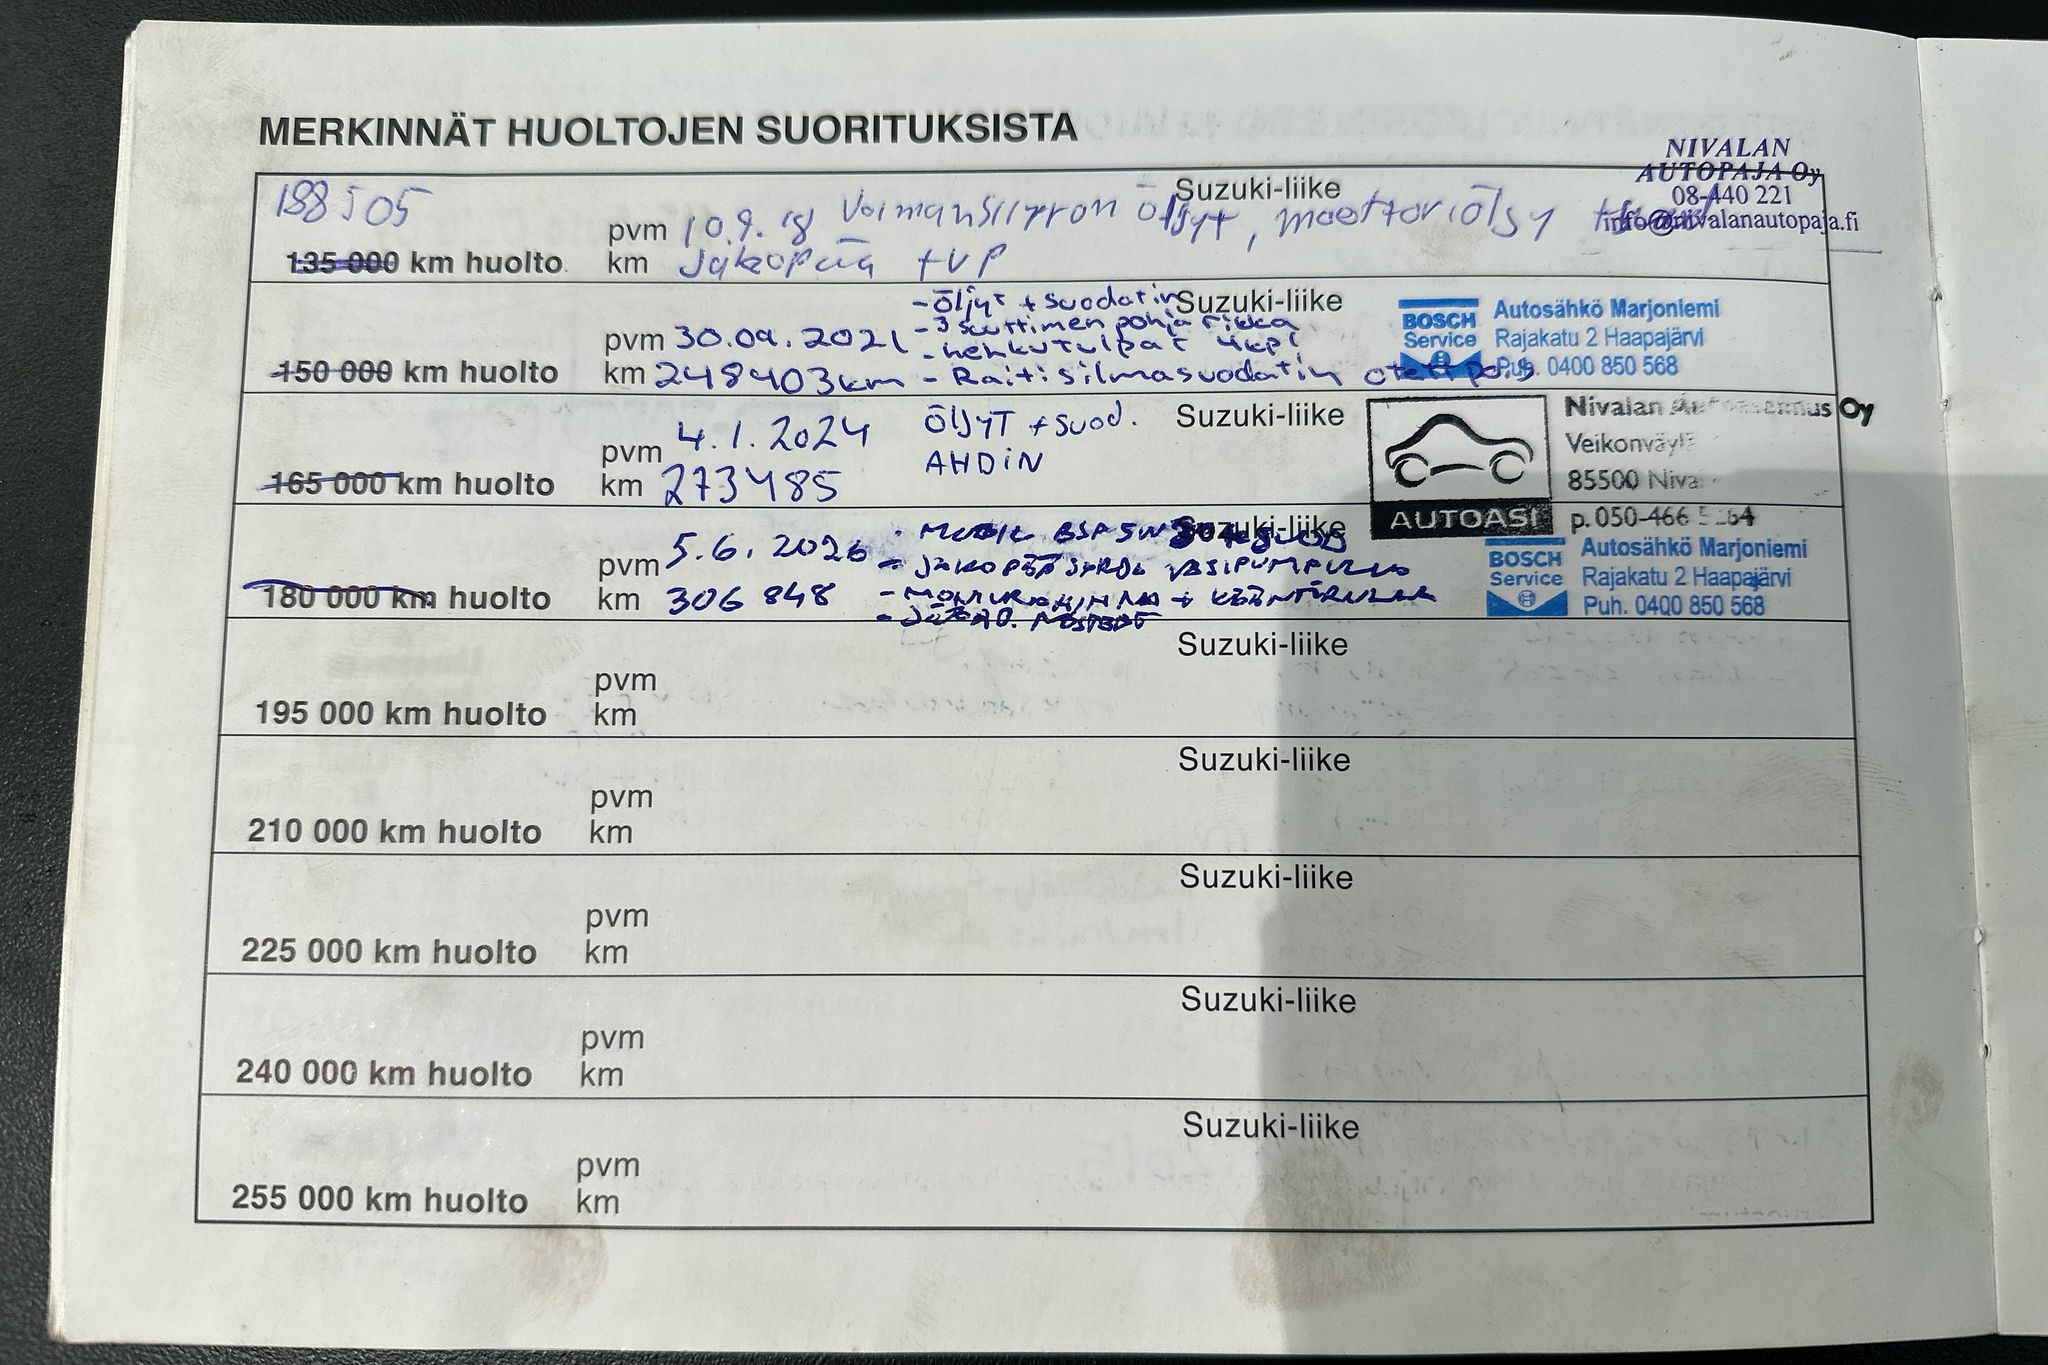 MERKINNÄT HUOLTOJEN SUORITUKSISTA
NIVALAN
AUTOPAJA Oy
08-440 221
info@nivalanautopaja.fi
188505
Suzuki-liike
pvm 10.9.18 Voimansiirron öljyt, moottoriöljy
135 000 km huolto km jakopää + vp
Suzuki-liike
- öljyt + suodatin
pvm 30.09.2021 - 3 suuttimen pohja rikka
- hehkutulpat 4kpl
150 000 km huolto km 248403km - Raitisilmasuodatin otett pois
BOSCH Service
Autosähkö Marjoniemi
Rajakatu 2 Haapajärvi
Puh. 0400 850 568
Suzuki-liike
pvm 4.1.2024 ÖljyT + suod.
165 000 km huolto km 273485 AHDIN
AUTOASI
Nivalan Oy
85500
p. 050-466
Suzuki-liike
pvm 5.6.2026
- JAKOPÄÄ VESIPUMPULLA
180 000 km huolto km 306 848
BOSCH Service
Autosähkö Marjoniemi
Rajakatu 2 Haapajärvi
Puh. 0400 850 568
Suzuki-liike
pvm
195 000 km huolto km
Suzuki-liike
pvm
210 000 km huolto km
Suzuki-liike
pvm
225 000 km huolto km
Suzuki-liike
pvm
240 000 km huolto km
Suzuki-liike
pvm
255 000 km huolto km